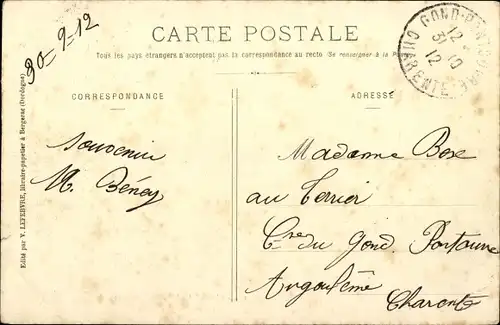 30-9-12
CARTE POSTALE
Tous les pays étrangers n'acceptent pas la correspondance au recto (Se renseigner à la Po
GOND-PONTOUVRE
12 10
12
CHARENTE
CORRESPONDANCE
ADRESSE
Souvenir
M. Béney
Madame Boxe
au Terrier
Cne du Gond Pontouvre
Angoulême
Charente
Edité par V. LEFEBVRE, libraire-papetier à Bergerac (Dordogne)